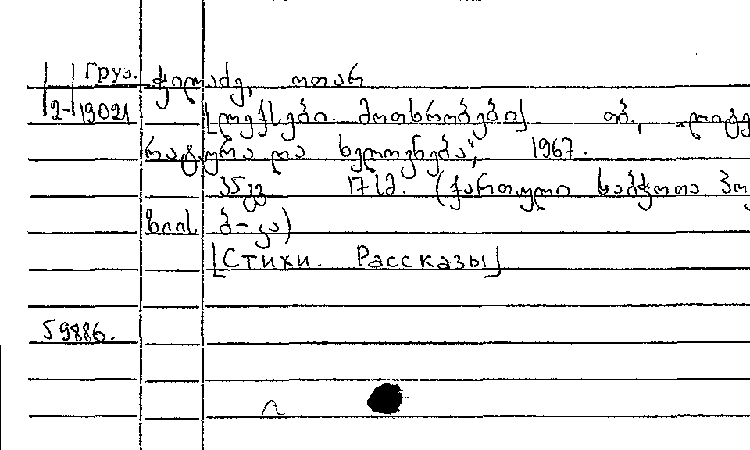 Груз. ჭილაძე, ოთარ
2-19021 [ლექსები მოთხრობები] თბ., „ლიტე
რატურა და ხელოვნება“, 1967.
35გვ 17სმ. (ქართული საბჭოთა პოე
ზიის ბ-კა)
[Стихи. Рассказы]
59886.